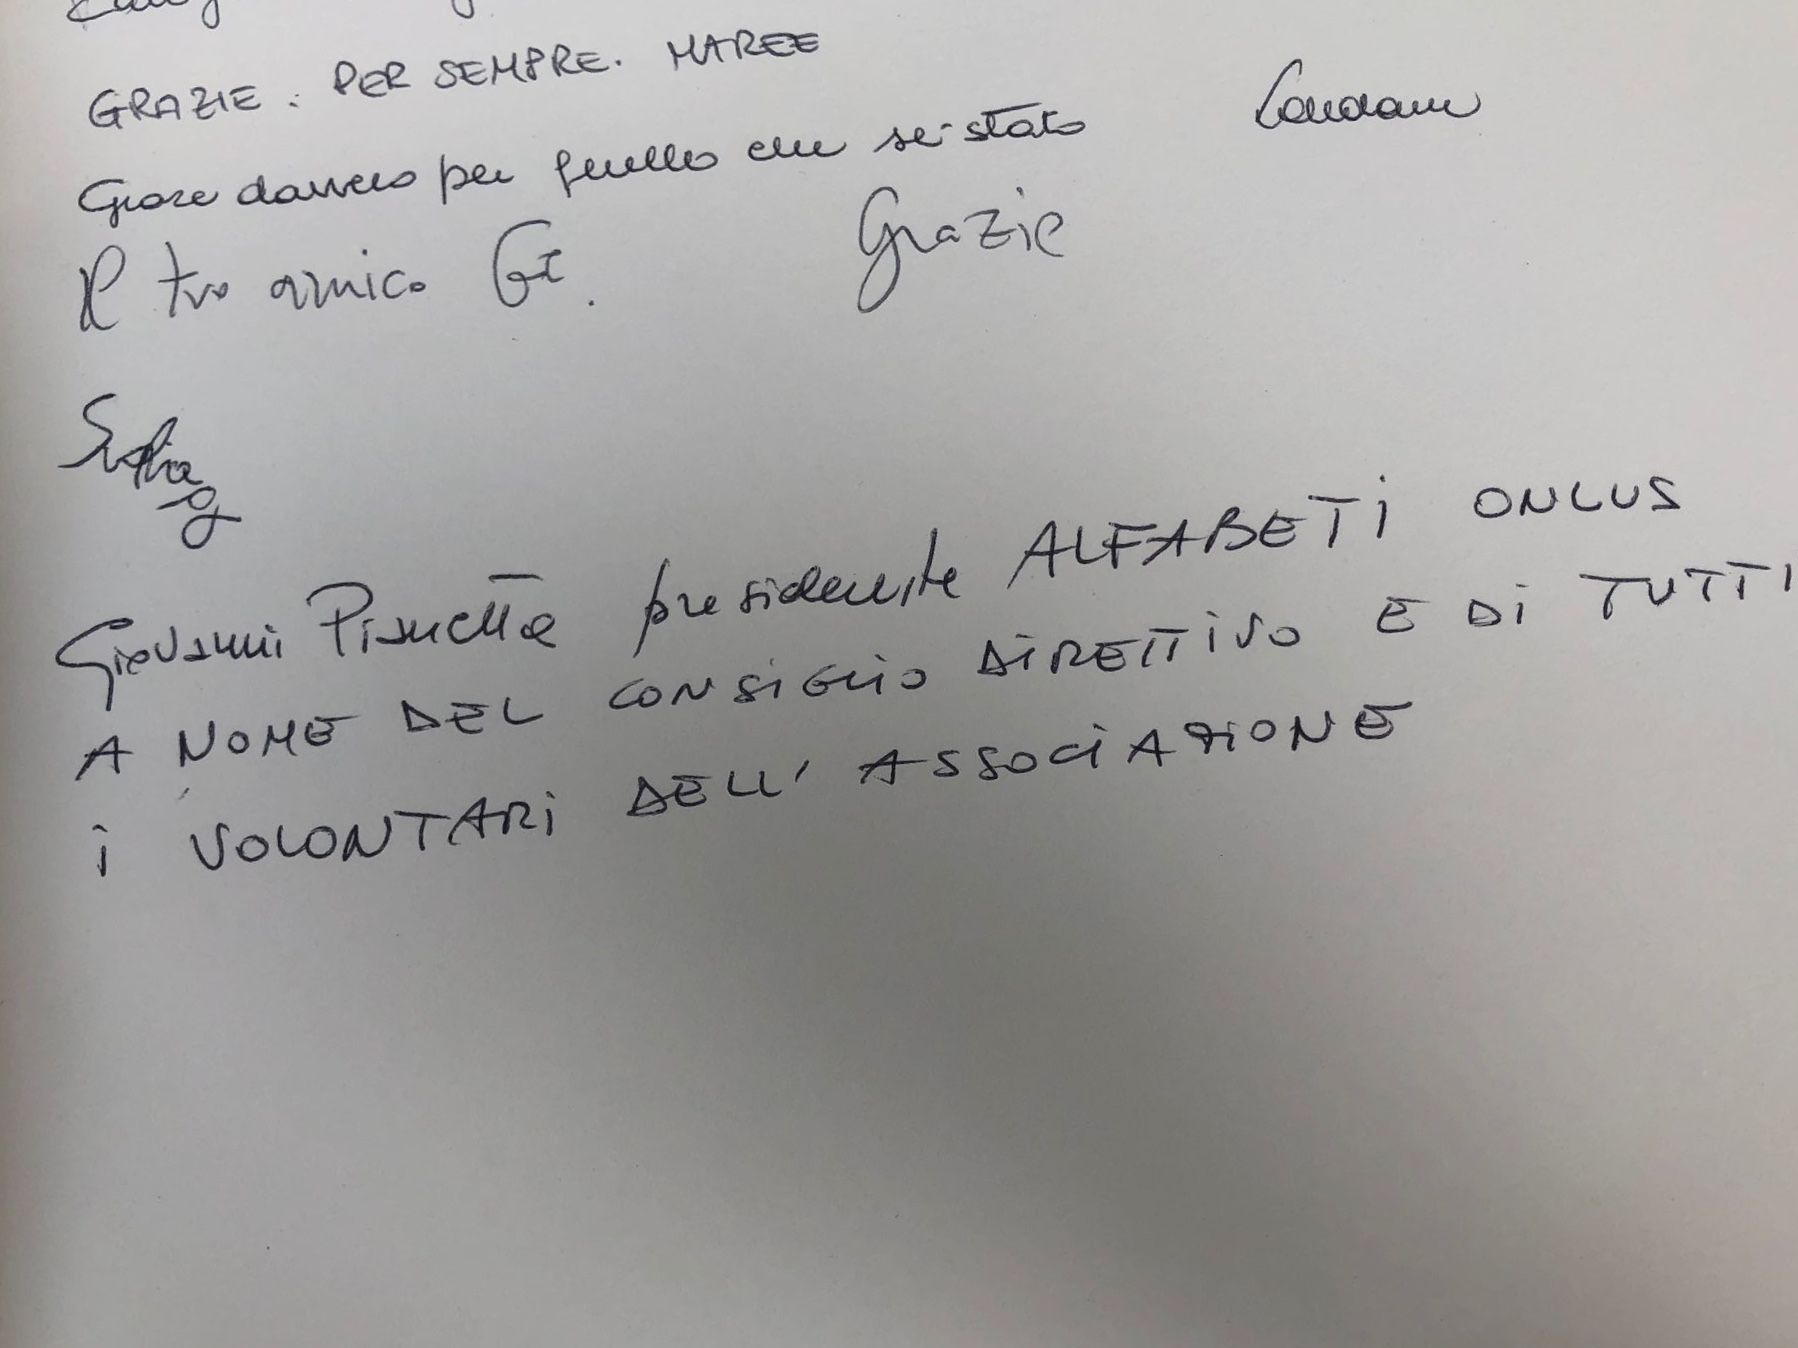 GRAZIE. PER SEMPRE. MAREE
Grazie davvero per quello che sei stato
Il tuo amico Gi. Grazie
Giovanni presidente ALFABETI ONLUS
A NOME DEL CONSIGLIO DIRETTIVO E DI TUTTI
i VOLONTARI DELL' ASSOCIAZIONE